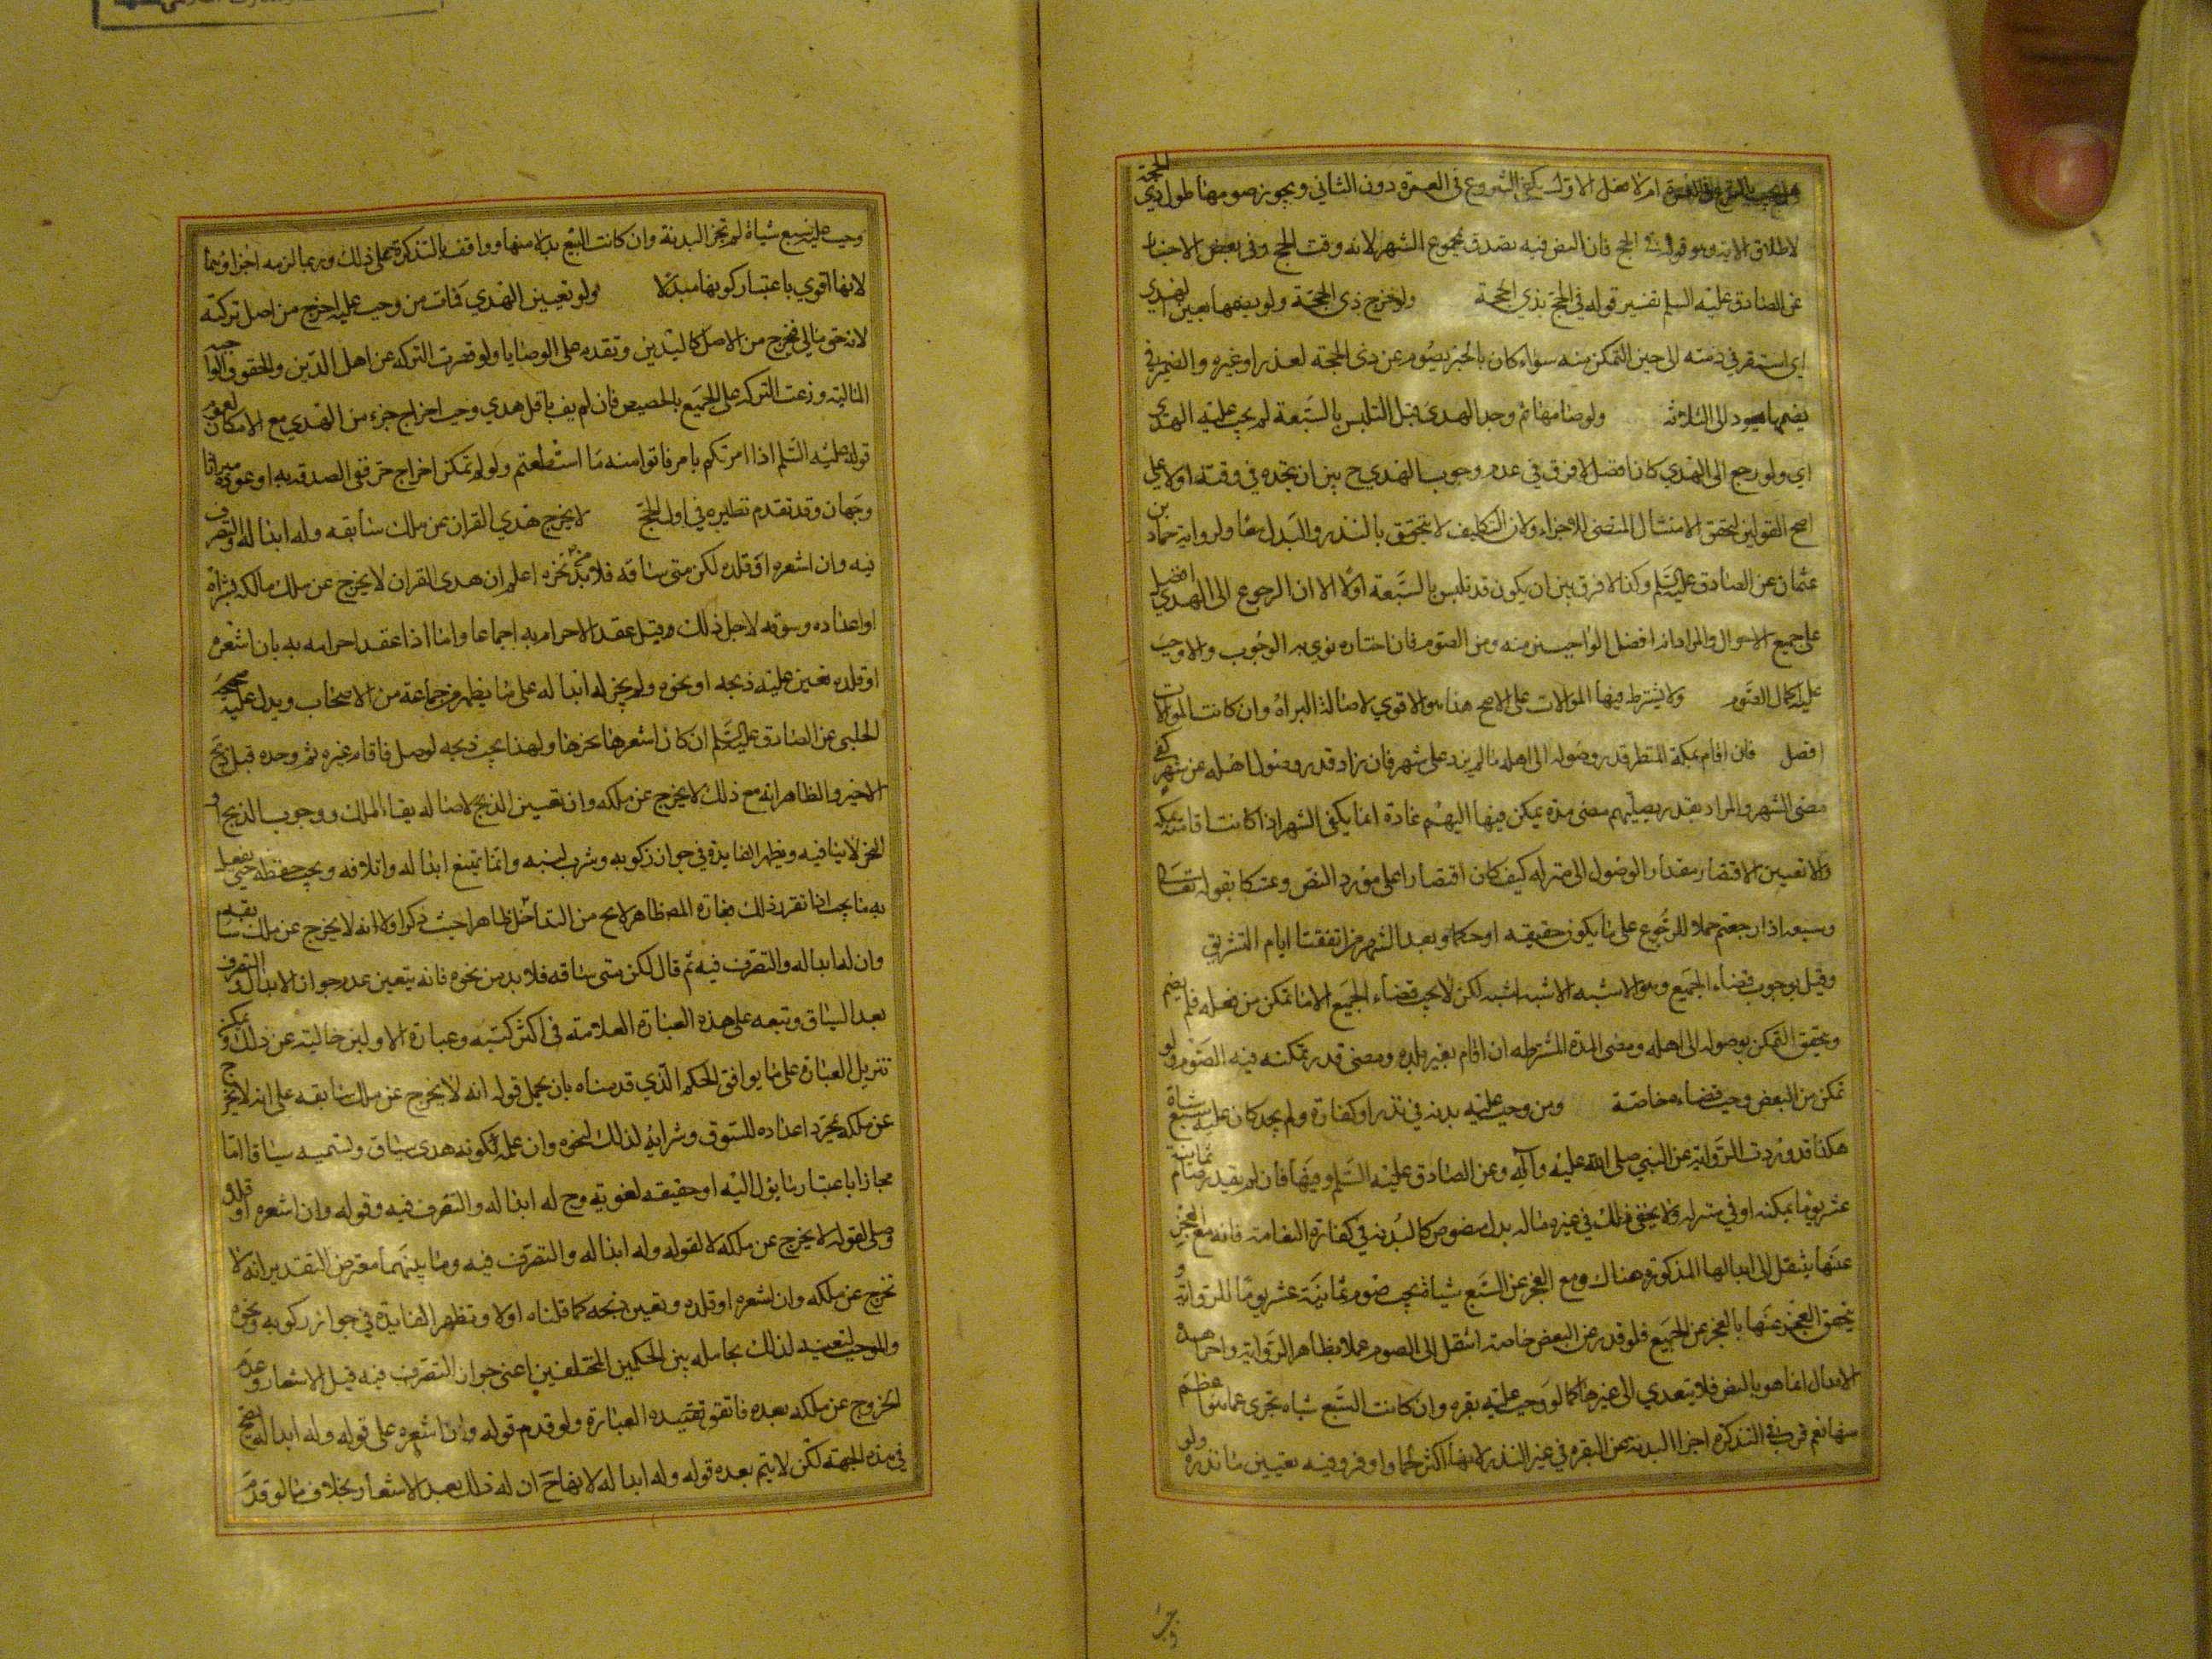 ام لا صل الاول يكفي الشروع في العمرة دون الثاني ويجوز صومها طول ذي الحجة
لاطلاق الاية وهو قوله في الحج فان النص فيه يصدق بمجموع الشهر لانه وقت الحج وفي بعض الاخبار
عن الصادق عليه السلم تفسير قوله في الحج بذي الحجة ولو خرج ذي الحجة ولو يصمها تعين الهدي
اي استقر في ذمته الى حين التمكن منه سواء كان تاخير يصوم عن ذي الحجة لعذر او غيره والضمير في
يصمها يعود الى الثلاثة ولو صامها ثم وجد الهدي قبل التلبس بالسبعة لم يجب عليه الهدي
اي ولو رجع الى الهدي كان افضل لا فرق في عدم وجوب الهدي ح بين ان يجده في وقته او لا على
اصح القولين لتحقق الامتثال المقتضي للاجزاء ولان التكليف لا يتحقق بالنذر والبدل معا ولرواية حماد بن
عثمان عن الصادق عليه السلم وكذا لا فرق بين ان يكون قد تلبس بالسبعة اولا الا ان الرجوع الى الهدي افضل
على جميع الاحوال والمراد انه افضل الواجبين منه ومن الصوم فان اختاره نوى به الوجوب والا وجب
عليه اكمال الصوم ولا يشترط فيها الموالات على الاصح هذا هو الاقوي لاصالة البراة وان كانت الموالات
افضل فان اقام بمكة انتظر قدر وصوله الى اهله ما لم يزد على شهر فان زاد قدر وصول اهله عن شهر كفى
مضي الشهر والمراد بقدر يصليهم مضي مدة يمكن فيها اليهم عادة انما يكفي الشهر اذا كانت اقامته بمكة
والا تعين الاقتصار مقدار الوصول الى منزله كيف كان اقتصارا على مورد النص وعتسكا بقوله تعالى
وسبعة اذا رجعتم حملا للرجوع على ما يكون حقيقه او حكما وبعد الشهر من اتفقتا ايام التشريق
وقيل بوجوب قضاء الجميع وهو الاشبه الاشبه اشبه لكن لا يجب قضاء الجميع الا ما تمكن من فعله فلم يصم
ويتحقق التمكن بوصوله الى اهله ومضي المدة المشترطه ان اقام بغير بلده ومضى قدر يمكنه فيه الصوم ولو
تمكن من البعض وجب قضاءه خاصة ومن وجب عليه بدنة في نذر او كفارة ولم يجد كان عليه سبع شياة
هكذا قد وردت الرواية عن النبي صلى الله عليه وآله وعن الصادق عليه السلم وفيها فان لم يقدر صام ثمانية
عشر يوما بمكة او في منزله ولا يخفى ذلك في غيره ماله بدل مخصوص كالبدنه في كفارة النعامة فانه مع العجز
عنها ينتقل الى ابدالها المذكورة هناك ومع العجز عن السبع شياة يجب صوم ثمانية عشر يوما للرواية و
يتحقق العجز عنها بالعجز عن الجميع فلو قدر عن البعض خاصة انتقل الى الصوم عملا بظاهر الرواية واجزا هذه
الابدال انما هو بالنص فلا يتعدي الى غيرها كما لو وجب عليه بقره وان كانت السبع شياه تجزي عما هو اعظم
منها نعم قرب في التذكرة اجزا البدنة عن البقره في غير النذر لانها اكثر لحما واوفر وفيه تعيين ما نذره ولو
وجب
وجب عليه سبع شياة لم تجز البدنة وان كانت السبع بدلا منها ووافق بالتذكرة على ذلك وربما لزمه اجزاؤهما
لانها اقوي باعتبار كونها مبدلا ولو تعين الهدي فمات من وجب عليه اخرج من اصل تركته
لانه حق مالي فيخرج من الاصل كالدين وتقدم على الوصايا ولو قصرت التركه عن اهل الدين والحقوق الواجبه
المالية وزعت التركه على الجميع بالحصص فان لم يف باقل هدي وجب اخراج جزء من الهدي مع الامكان لعموم
قوله عليه السلم اذا امرتكم بامر فاتوا منه ما استطعتم ولو لم تمكن اخراج جزء ففي الصدقه به او عوده ميراثا
وجهان وقد تقدم نظيره في اول الحج لا يخرج هدي القران من ملك سائقه وله ابداله والتصرف
فيه وان اشعره او قلده لكن متى ساقه فلا بد من نحره اعلم ان هدي القران لا يخرج عن ملك مالكه بشراه
او اعداده وسوقه لاجل ذلك وقبل عقد الاحرام به اجماعا واما اذا عقد احرامه به بان اشعره
او قلده تعين عليه ذبحه او نحره ولم يجز له ابداله على ما يظهر من جماعة من الاصحاب ويدل عليه صحيحة
الحلبي عن الصادق عليه السلم ان كان اشعرها نحرها ولهذا يجب ذبحه لو ضل فاقام غيره ثم وجده قبل ذبح
الاخير والظاهر انه مع ذلك لا يخرج عن ملكه وان تعين الذبح لاصالة بقاء الملك ووجوب الذبح او
النحر لا ينافيه ويظهر الفايدة في جواز ركوبه وشرب لبنه وانما يمتنع ابداله واتلافه ويجب حفظه حتى يفعل
به ما يجب اذا تقرر ذلك فعبارة المص ظاهر لا يح من التداخل ظاهرا حيث ذكر اولا انه لا يخرج عن ملك سايقه
وان له ابداله والتصرف فيه ثم قال لكن متى ساقه فلا بد من نحره فانه يتعين عدم جواز الابدال والتصرف
بعد السياق وتبعه على هذه العبارة العلامة في اكثر كتبه وعبارة الاولين خالية عن ذلك ويمكن
تنزيل العبارة على ما يوافق الحكم الذي قدمناه بان يحمل قوله انه لا يخرج عن ملك سايقه على انه لا يخرج
عن ملكه بمجرد اعداده للسوق وشرايه لذلك لنحره وان عمله لكونه هدي سياق وتسميه سياقا اما
مجازا باعتبار ما يؤل اليه او حقيقه لغوية وح له ابداله والتصرف فيه وقوله وان اشعره او قلده
وصلي لقوله لا يخرج عن ملكه لا لقوله وله ابداله والتصرف فيه وما بينهما معترض التقدير انه لا
تخرج عن ملكه وان اشعره او قلده وتعين ذبحه كما قلناه اولا وتظهر الفايدة في جواز ركوبه ونحوه
والموجب لتعينه لذلك بجامله بين الحكمين المختلفين اعني جواز التصرف فيه قبل الاشعار وعدم
الخروج عن ملكه بعده فاتفق تعقيده العبارة ولو قدم قوله وان اشعره على قوله وله ابداله لصح
في هذه الجهة لكن لا يتم بعده قوله وله ابداله لايهامه ح ان له ذلك بعد الاشعار بخلاف ما لو قدم